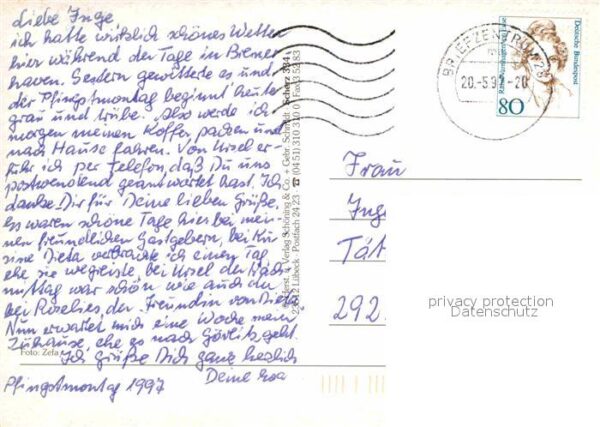 Liebe Inge
ich hatte wirklich schönes Wetter
hier während der Tage in Bremer
haven. Gestern gewitterte es und
der Pfingstmontag beginnt heute
grau und trübe. Also werde ich
morgen meinen Koffer packen und
nach Hause fahren. Von Ursel er-
fuhr ich per Telefon, daß Du uns
postwendend geantwortet hast. Ich
danke Dir für Deine lieben Grüße.
Es waren schöne Tage hier bei mei-
nen freundlichen Gastgebern, bei Ku
sine Dieta verbrachte ich einen Tag
ehe sie wegreiste, bei Ursel der Nach
mittag war schön wie auch der
bei Roselies, der Freundin von Dieta
Nun erwartet mich eine Woche mein
Zuhause, ehe es nach Görlitz geht.
Ich grüße Dich ganz herzlich
Deine
Pfingstmontag 1997
Foto: Zefa
Verlag Schöning & Co. + Gebr. Schmidt
Lübeck · Postfach 24 23 ☎ (04 51) 310 310
BRIEFZENTRUM 28
20.-5.97-20
Deutsche Bundespost
80
Frau
Inge
Tát
292
privacy protection
Datenschutz